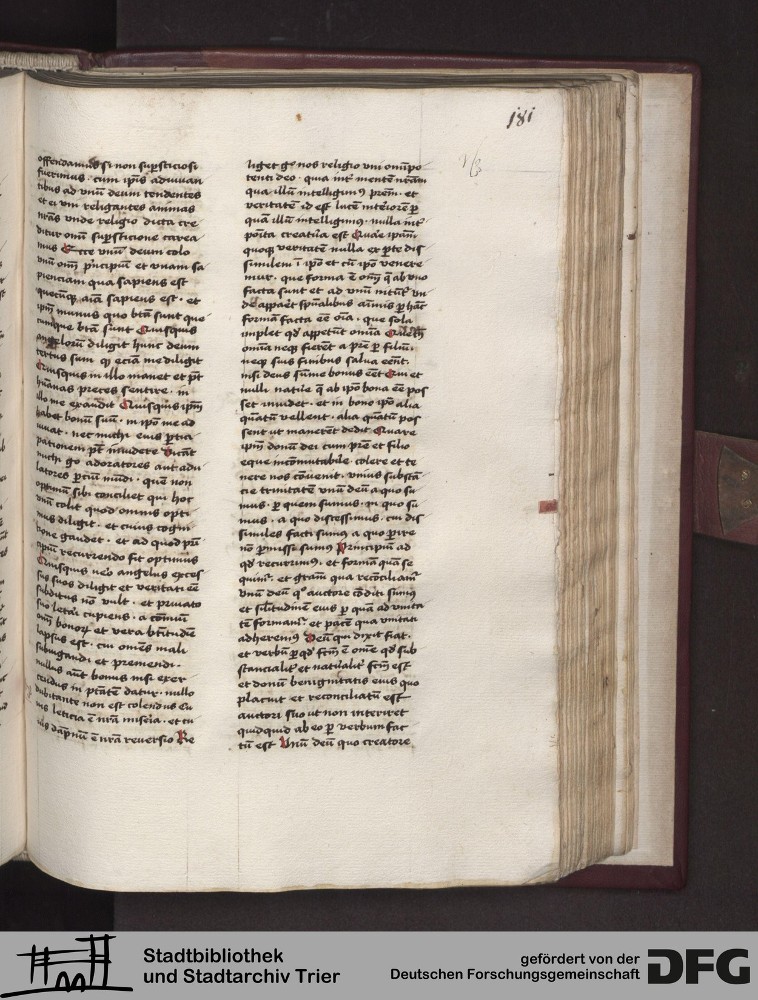 181
offendamus si non supersticiosi
fuerimus · cum ipīs adiuuan
tibus ad vnū deum tendentes
et ei vni religantes animas
nrās vnde religio dicta cre
ditur omī superstitione carea
mus Ecce vnū deum colo
vnū omī principiū et vnam sa
pienciam qua sapiens est
quecūqꝫ aīa sapiens est · et
ip̄m munus quo btā sunt que
cumque btā sunt Quisquis
angelorū diligit hunc deum
certus sum qꝫ eciā me diligit
Quisquis in illo manet et pōt
humanas preces sentire · in
illo me exaudit Quisquis ip̄m
habet bonū suū · in ip̄o me ad
iuuat · nec michi eius p̱tici
pationem pōt inuidere Dicāt
michi gͦ adoratores aut adu
latores p̱ciū mūdi · quē non
optimū sibi conciliet qui hoc
vnū colit quod omnis opti
mus diligit · et cuius cogni
tione gaudet · et ad quod prī
cipiū recurrendo fit optimus
Quisquis ūo angelus exces
sus suos diligit et veritati eē
subditus nō vult · et priuato
suo letari cupiens · a cōmuni
omī bonoꝝ et vera btītudīe
lapsus est · cui omēs mali
subiugandi et premendi ·
nullus aūt bonus nisi exer
cendus in ptātē datur · nullo
dubitante non est colendus Cu
ius leticia ē nrā miseria · et cu
ius dāpnū ē nrā reuersio Re
liget gͦ nos religio vni omīpo
tenti deo · quia int̄ mentē nrām
qua illū intelligimꝰ prem̄ · et
veritatē id est lucē int̄iorē p̱
quā illū intelligimꝰ · nulla int̄
poīta creatura est Quare ipam̄
quoqꝫ veritatē nulla ex p̱te dis
similem ī ip̄o et cū ip̄o venere
mur · que forma ē omī q̄ ab vno
facta sunt et ad vnū nitūt̄ Vn
de apparet spūalibus aīmis p̱ hāc
formā facta eē oīa · que sola
implet qd̄ appetūt omīa
omīa neqꝫ fierēt a prē p̱ filiū ·
neqꝫ suis finibus salua eēnt ·
nisi deus sūme bonus eēt Qui et
nulli nature q̄ ab ip̄o bona eē pos
set inuidet · et in bono ip̄o alia
quātū vellent · alia quātū pos
sent ut manerēt dedit Quare
ip̄m donū dei cum prē et filio
eque incōmutabile colere et te
nere nos cōuenit · vnius substā
cie trinitatē vnū deū a quo su
mus · p̱ quem sumus · in quo su
mus · a quo discessimus · cui dis
similes facti sumꝰ a quo p̱ire
nō p̱missi sumꝰ Principiū ad
qd̄ recurrimꝰ · et formā quā se
quimur · et grām̄ qua reconciliamur
vnū deū qͦ auctore cōditi sumꝰ
et silitudinē eius p̱ quā ad vnita
tē formamur · et pacē qua vnitati
adheremꝰ Deū qui dixit fiat ·
et verbū p̱ qd̄ fcm̄ ē omē qd̄ sub
stancialit̄ et naturalit̄ fcm̄ est
et donū benignitatis eius quo
placuit et reconciliatū est
auctori suo ut non interiret
quidquid ab eo p̱ verbum fac
tū est Vnū deū quo creatore
Stadtbibliothek
und Stadtarchiv Trier
gefördert von der
Deutschen Forschungsgemeinschaft
DFG